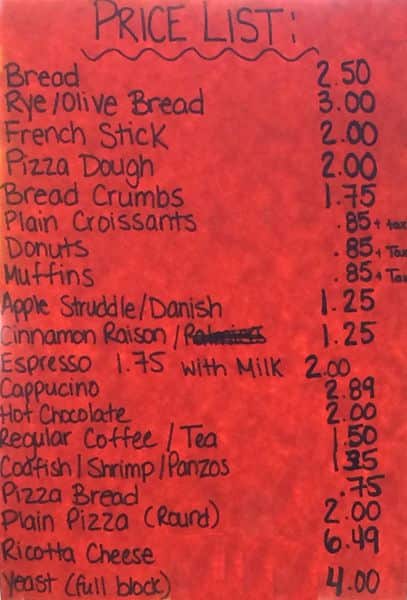 PRICE LIST:
Bread 2.50
Rye/Olive Bread 3.00
French Stick 2.00
Pizza Dough 2.00
Bread Crumbs 1.75
Plain Croissants .85 + tax
Donuts .85 + Tax
Muffins .85 + Tax
Apple Struddle/Danish 1.25
Cinnamon Raison / 1.25
Espresso 1.75 with Milk 2.00
Cappucino 2.89
Hot Chocolate 2.00
Regular Coffee / Tea 1.50
Codfish/Shrimp/Panzos
Pizza Bread .75
Plain Pizza (Round) 2.00
Ricotta Cheese 6.49
Yeast (full block) 4.00